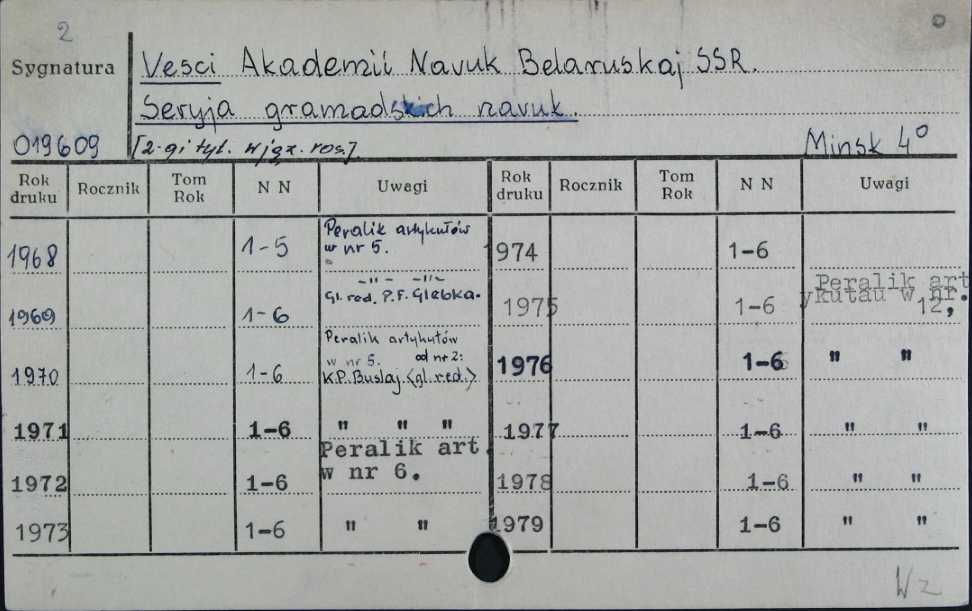 2
Sygnatura Vesci Akademii Navuk Belaruskaj SSR.
Seryja gramadskich navuk.
019609 [2-gi tyt. w jęz. ros.]. Minsk 4°
Rok druku Rocznik Tom Rok N N Uwagi Rok druku Rocznik Tom Rok N N Uwagi
1968 1-5 Peralik artykułów w nr 5. 1974 1-6
1969 1-6 -"- -"- Gl. red. P.F. Glebka. 1975 1-6 Peralik artykułau w nr. 12,
1970 1-6 Peralik artykułów w nr 5. od nr 2: K.P. Buslaj <gl. red.> 1976 1-6 " "
1971 1-6 " " " 1977 1-6 " "
1972 1-6 Peralik art. w nr 6. 1978 1-6 " "
1973 1-6 " " 1979 1-6 " "